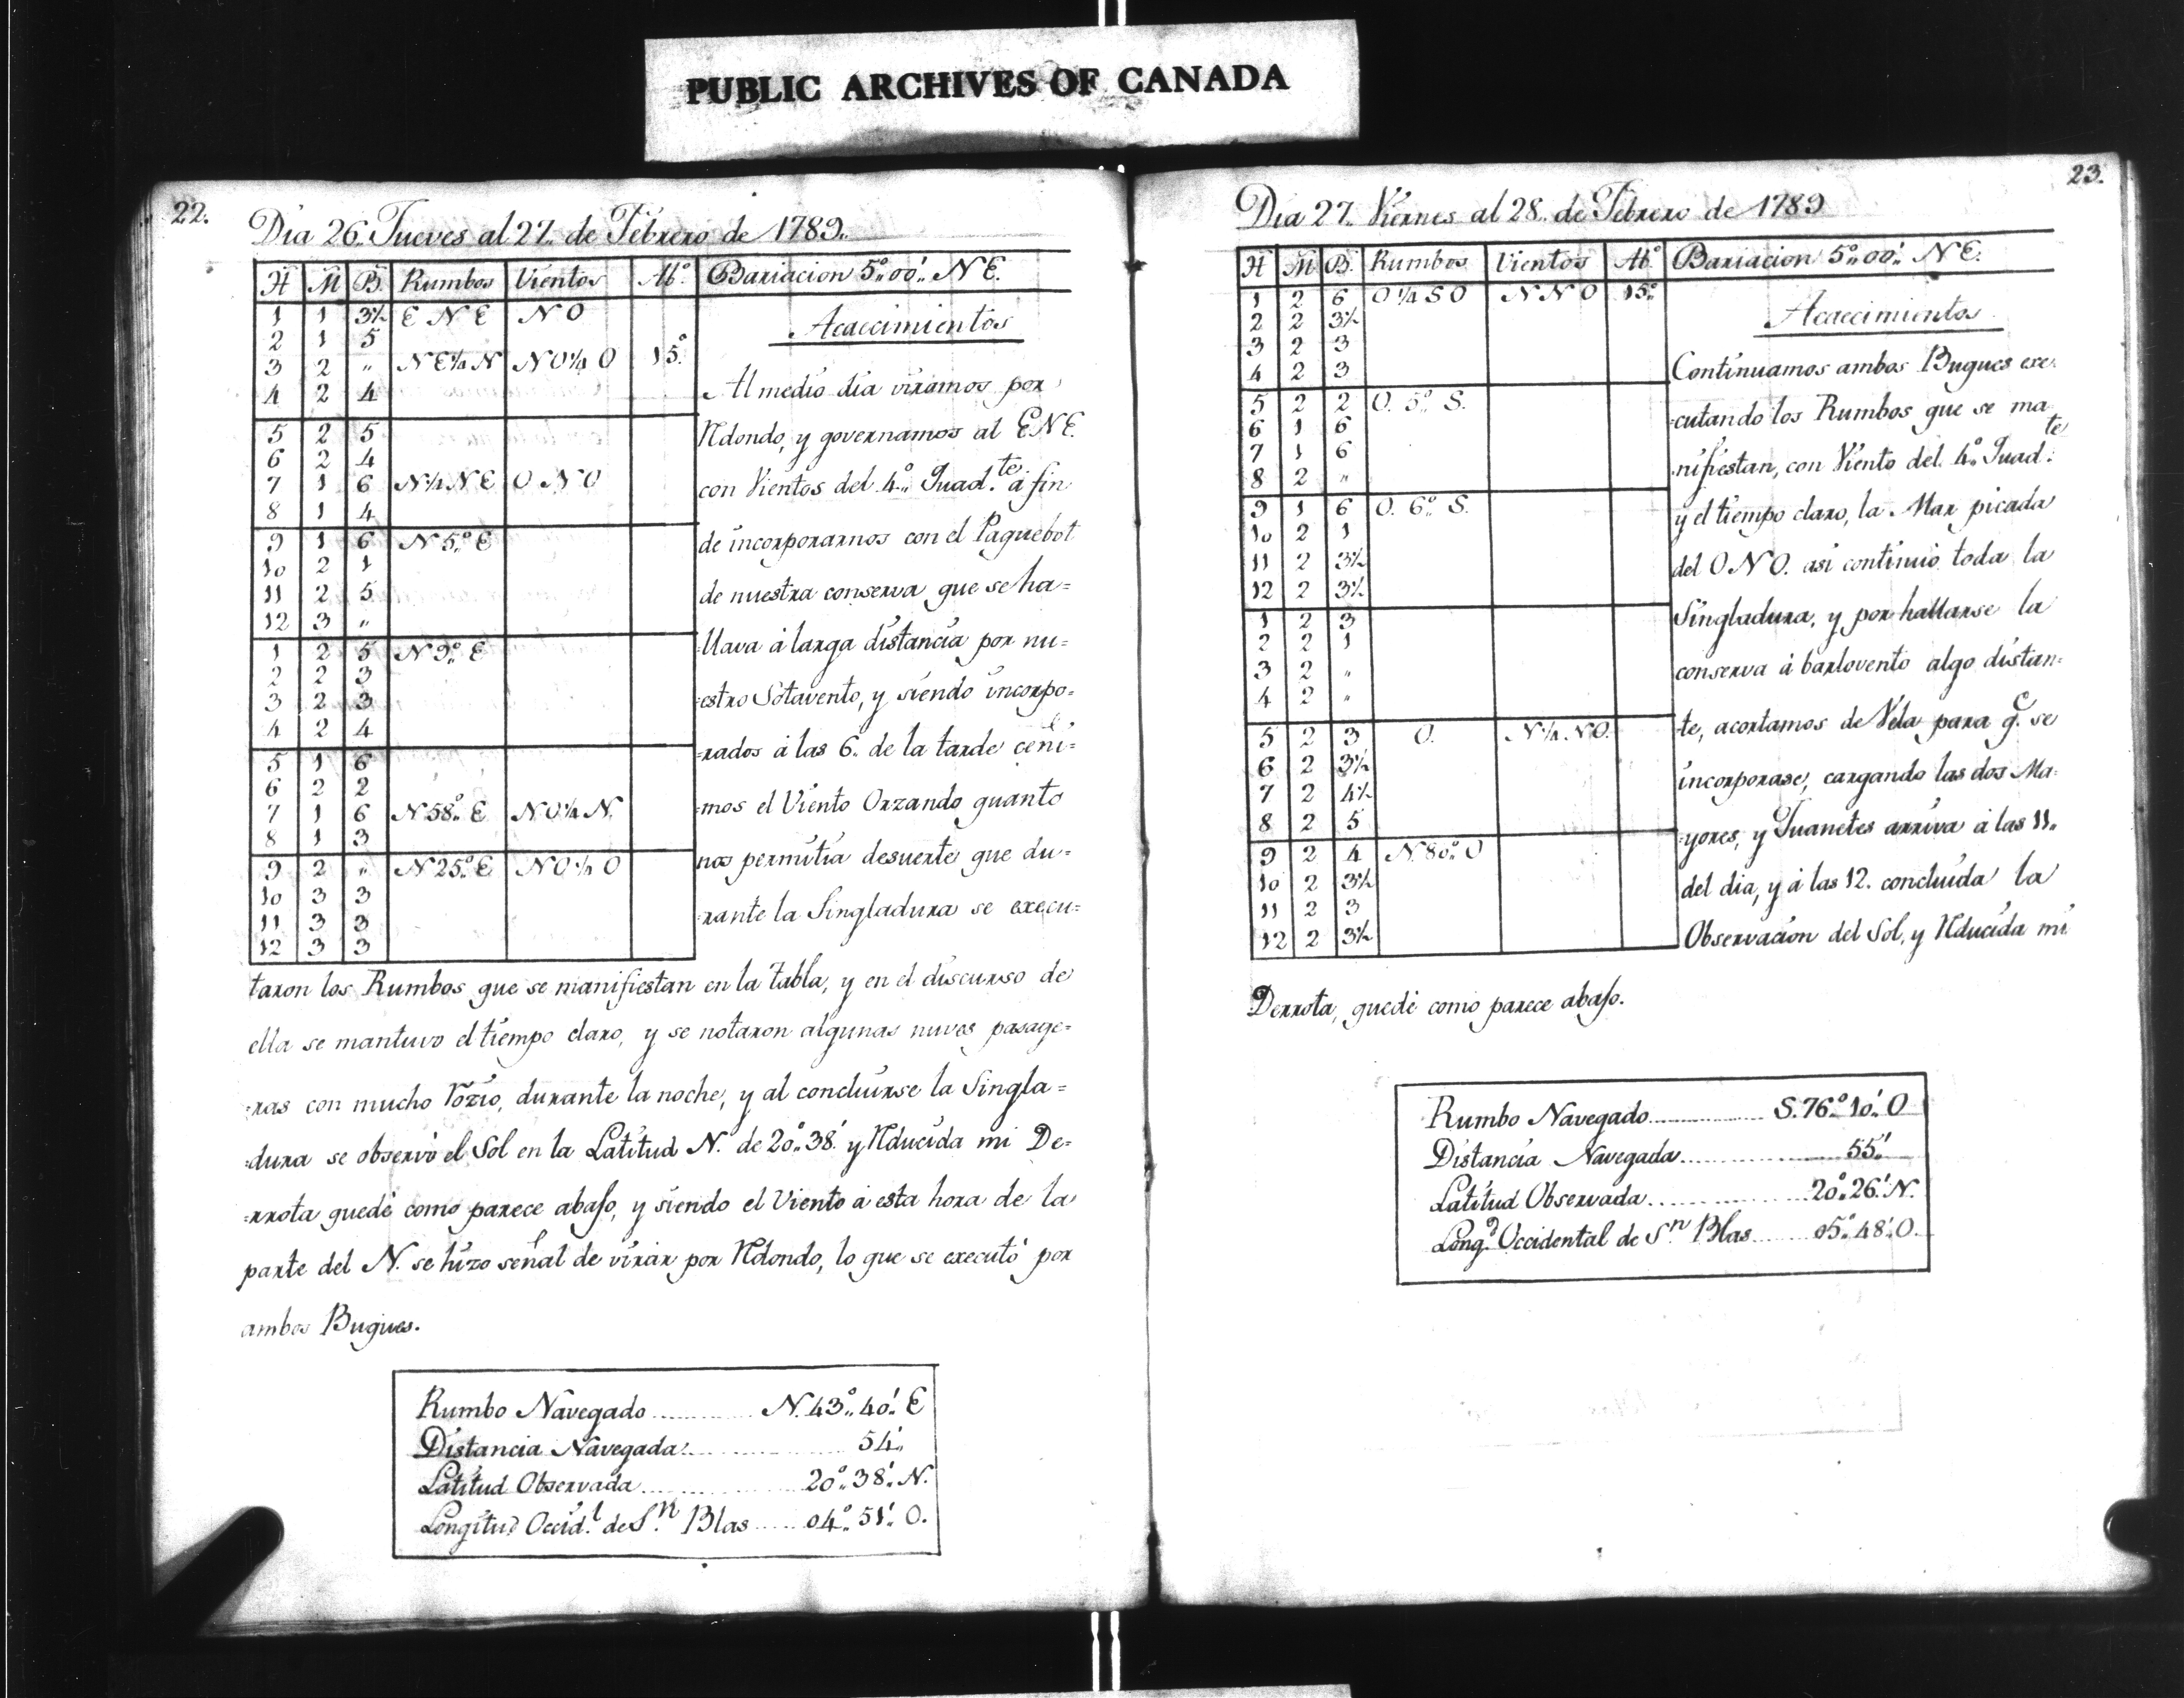 PUBLIC ARCHIVES OF CANADA
22.
Dia 26,, Jueves al 27,, de Febrero de 1789,,
H M B. Rumbos Vientos Ab.º Bariacion 5º,, 00',, N E.
1 1 3½ E N E N O
2 1 5
3 2 ,, N E ¼ N N O ¼ O 15.º
4 2 4
5 2 5
6 2 4
7 1 6 N ¼ N E O N O
8 1 4
9 1 6 N 5,,º E
10 2 1
11 2 5
12 3 ,,
1 2 5 N 9,,º E
2 2 3
3 2 3
4 2 4
5 1 6
6 2 2
7 1 6 N 58,,º E N O ¼ N.
8 1 3
9 2 ,, N 25,,º E N O ¼ O
10 3 3
11 3 3
12 3 3
Acaecimientos
Al medio dia viramos por
Rdondo, y governamos al ENE.
con Vientos del 4,,º Quad.te á fin
de incorporarnos con el Paquebot
de nuestra conserva que se ha=
=llava á larga distancia por nu=
=estro Sotavento, y siendo incorpo=
=rados á las 6,, de la tarde ceñi=
=mos el Viento Orzando quanto
nos permitia desuerte que du=
=rante la Singladura se execu=
taron los Rumbos que se manifiestan en la tabla, y en el discurso de
ella se mantuvo el tiempo claro, y se notaron algunas nuves pasage=
=ras con mucho Rozio, durante la noche, y al concluirse la Singla=
=dura se observó el Sol en la Latitud N. de 20º,, 38.' y Rducida mi De=
=rrota quedé como parece abajo, y siendo el Viento á esta hora de la
parte del N. se hizo señal de virar por Rdondo, lo que se executó por
ambos Buques.
Rumbo Navegado N. 43º,, 40',, E
Distancia Navegada 54',,
Latitud Observada 20º,, 38',, N.
Longitud Occid.l de S.n Blas 04º,, 51',, O.
23.
Dia 27,, Viernes al 28,, de Febrero de 1789
H M B. Rumbos Vientos Ab.º Bariacion 5º,, 00',, N E.
1 2 6 O ¼ S O N N O 15º
2 2 3½
3 2 3
4 2 3
5 2 2 O. 5,,º S.
6 1 6
7 1 6
8 2 ,,
9 1 6 O. 6,,º S.
10 2 1
11 2 3½
12 2 3½
1 2 3
2 2 1
3 2 ,,
4 2 ,,
5 2 3 O. N ¼ N O.
6 2 3½
7 2 4½
8 2 5
9 2 4 N. 80,,º O
10 2 3½
11 2 3
12 2 3½
Acaecimientos
Continuamos ambos Buques exe=
=cutando los Rumbos que se ma=
=nifiestan, con Viento del 4,,º Quad.te
y el tiempo claro, la Mar picada
del O N O. asi continuó toda la
Singladura, y por hallarse la
conserva á barlovento algo distan=
te, acortamos de Vela para q.e se
incorporase, cargando las dos Ma=
=yores, y Juanetes arriva á las 11,,
del dia, y á las 12. concluida la
Observacion del Sol, y Rducida mi
Derrota, quedé como parece abajo.
Rumbo Navegado S. 76º,, 10',, O
Distancia Navegada 55',,
Latitud Observada 20º,, 26',, N.
Long.d Occidental de S.n Blas 05º,, 48',, O.